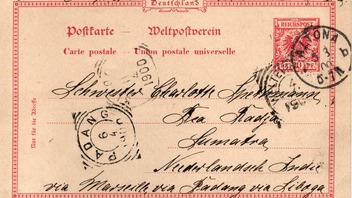 Deutschland
Postkarte — Weltpostverein
Carte postale — Union postale universelle
REICHSPOST
10
Nur für die Adresse
PADANG
6
4
Schwester Charlotte
Pea Radja
Sumatra
Nederlandsch Indië
via Marseille via Padang via Siboga